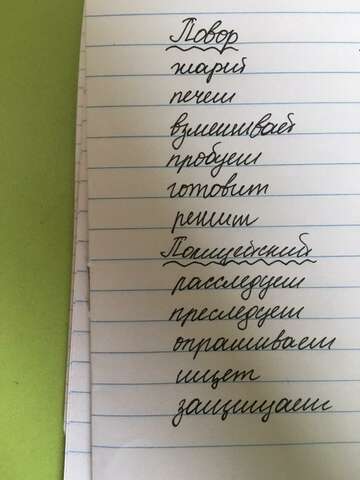 Повор
жарит
печет
взмешивает
пробует
готовит
режит
Полицейский
расследует
преследует
опрашивает
ищет
защищает